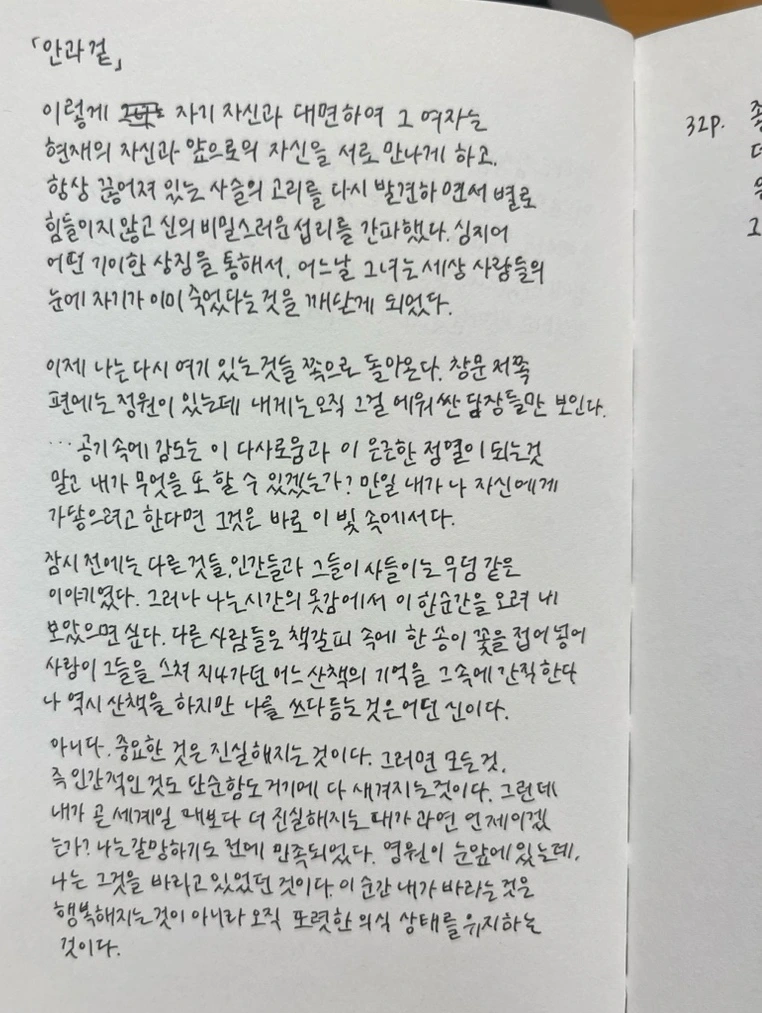 「안과겉」
이렇게 자기 자신과 대면하여 그 여자는
현재의 자신과 앞으로의 자신을 서로 만나게 하고,
항상 끊어져 있는 사슬의 고리를 다시 발견하면서 별로
힘들이지 않고 신의 비밀스러운 섭리를 간파했다. 심지어
어떤 기이한 상징을 통해서, 어느날 그녀는 세상 사람들의
눈에 자기가 이미 죽었다는 것을 깨닫게 되었다.
이제 나는 다시 여기 있는 것들 쪽으로 돌아온다. 창문 저쪽
편에는 정원이 있는데 내게는 오직 그걸 에워싼 담장들만 보인다.
… 공기 속에 감도는 이 다사로움과 이 은근한 정열이 되는것
말고 내가 무엇을 또 할 수 있겠는가? 만일 내가 나 자신에게
가 닿으려고 한다면 그것은 바로 이 빛 속에서다.
잠시 전에는 다른 것들, 인간들과 그들이 사들이는 무덤 같은
이야기였다. 그러나 나는 시간의 옷감에서 이 한순간을 오려 내
보았으면 싶다. 다른 사람들은 책갈피 속에 한 송이 꽃을 접어 넣어
사랑이 그들을 스쳐 지나가던 어느 산책의 기억을 그속에 간직한다
나 역시 산책을 하지만 나를 쓰다듬는 것은 어떤 신이다.
아니다. 중요한 것은 진실해지는 것이다. 그러면 모든 것,
즉 인간적인 것도 단순함도 거기에 다 새겨지는 것이다. 그런데
내가 곧 세계일 때보다 더 진실해지는 때가 과연 언제이겠
는가? 나는 갈망하기도 전에 만족되었다. 영원이 눈앞에 있는데,
나는 그것을 바라고 있었던 것이다. 이 순간 내가 바라는 것은
행복해지는 것이 아니라 오직 또렷한 의식 상태를 유지하는
것이다.
32p.